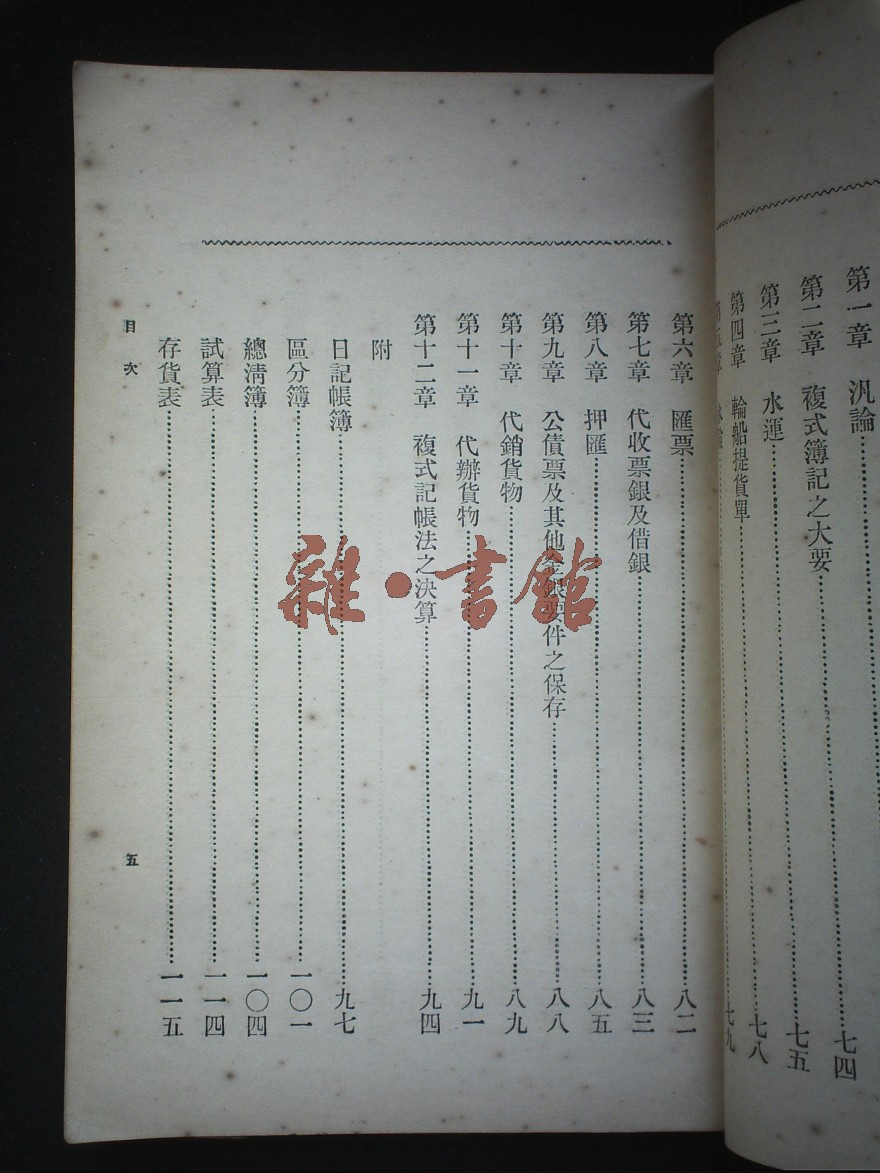 第一章 汎論……七四
第二章 複式簿記之大要……七五
第三章 水運……七八
第四章 輪船提貨單……七九
第六章 匯票……八二
第七章 代收票銀及借銀……八三
第八章 押匯……八五
第九章 公債票及其他金銀要件之保存……八八
第十章 代銷貨物……八九
第十一章 代辦貨物……九一
第十二章 複式記帳法之決算……九四
附
日記帳簿……九七
區分簿……一〇一
總清簿……一〇四
試算表……一一四
存貨表……一一五
目次 五
雜·書館